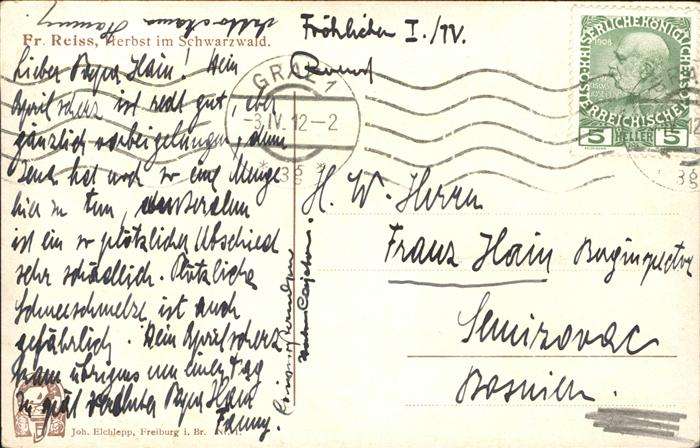 Fröhlichen I./IV.
Fr. Reiss, Herbst im Schwarzwald.
Lieber Papa Hain! Dein
Aprilscherz ist recht gut, aber
gänzlich vorbeigelungen, denn
hat noch so eine Menge
hier zu tun,
ist ein so plötzlicher Abschied
sehr schädlich. Plötzliche
Schneeschmelze ist auch
gefährlich. Dein Aprilscherz
kam übrigens um einen Tag
zu spät Papa Hain
Fanny.
GRAZ 1
-3.IV.12-2
* 3g *
KAISERLICHE KÖNIGLICHE
1908
ÖSTERREICHISCHE
5 HELLER 5
H. W. Herrn
Franz Hain Baginspector
Semizovac
Bosnien.
Joh. Elchlepp, Freiburg i. Br.